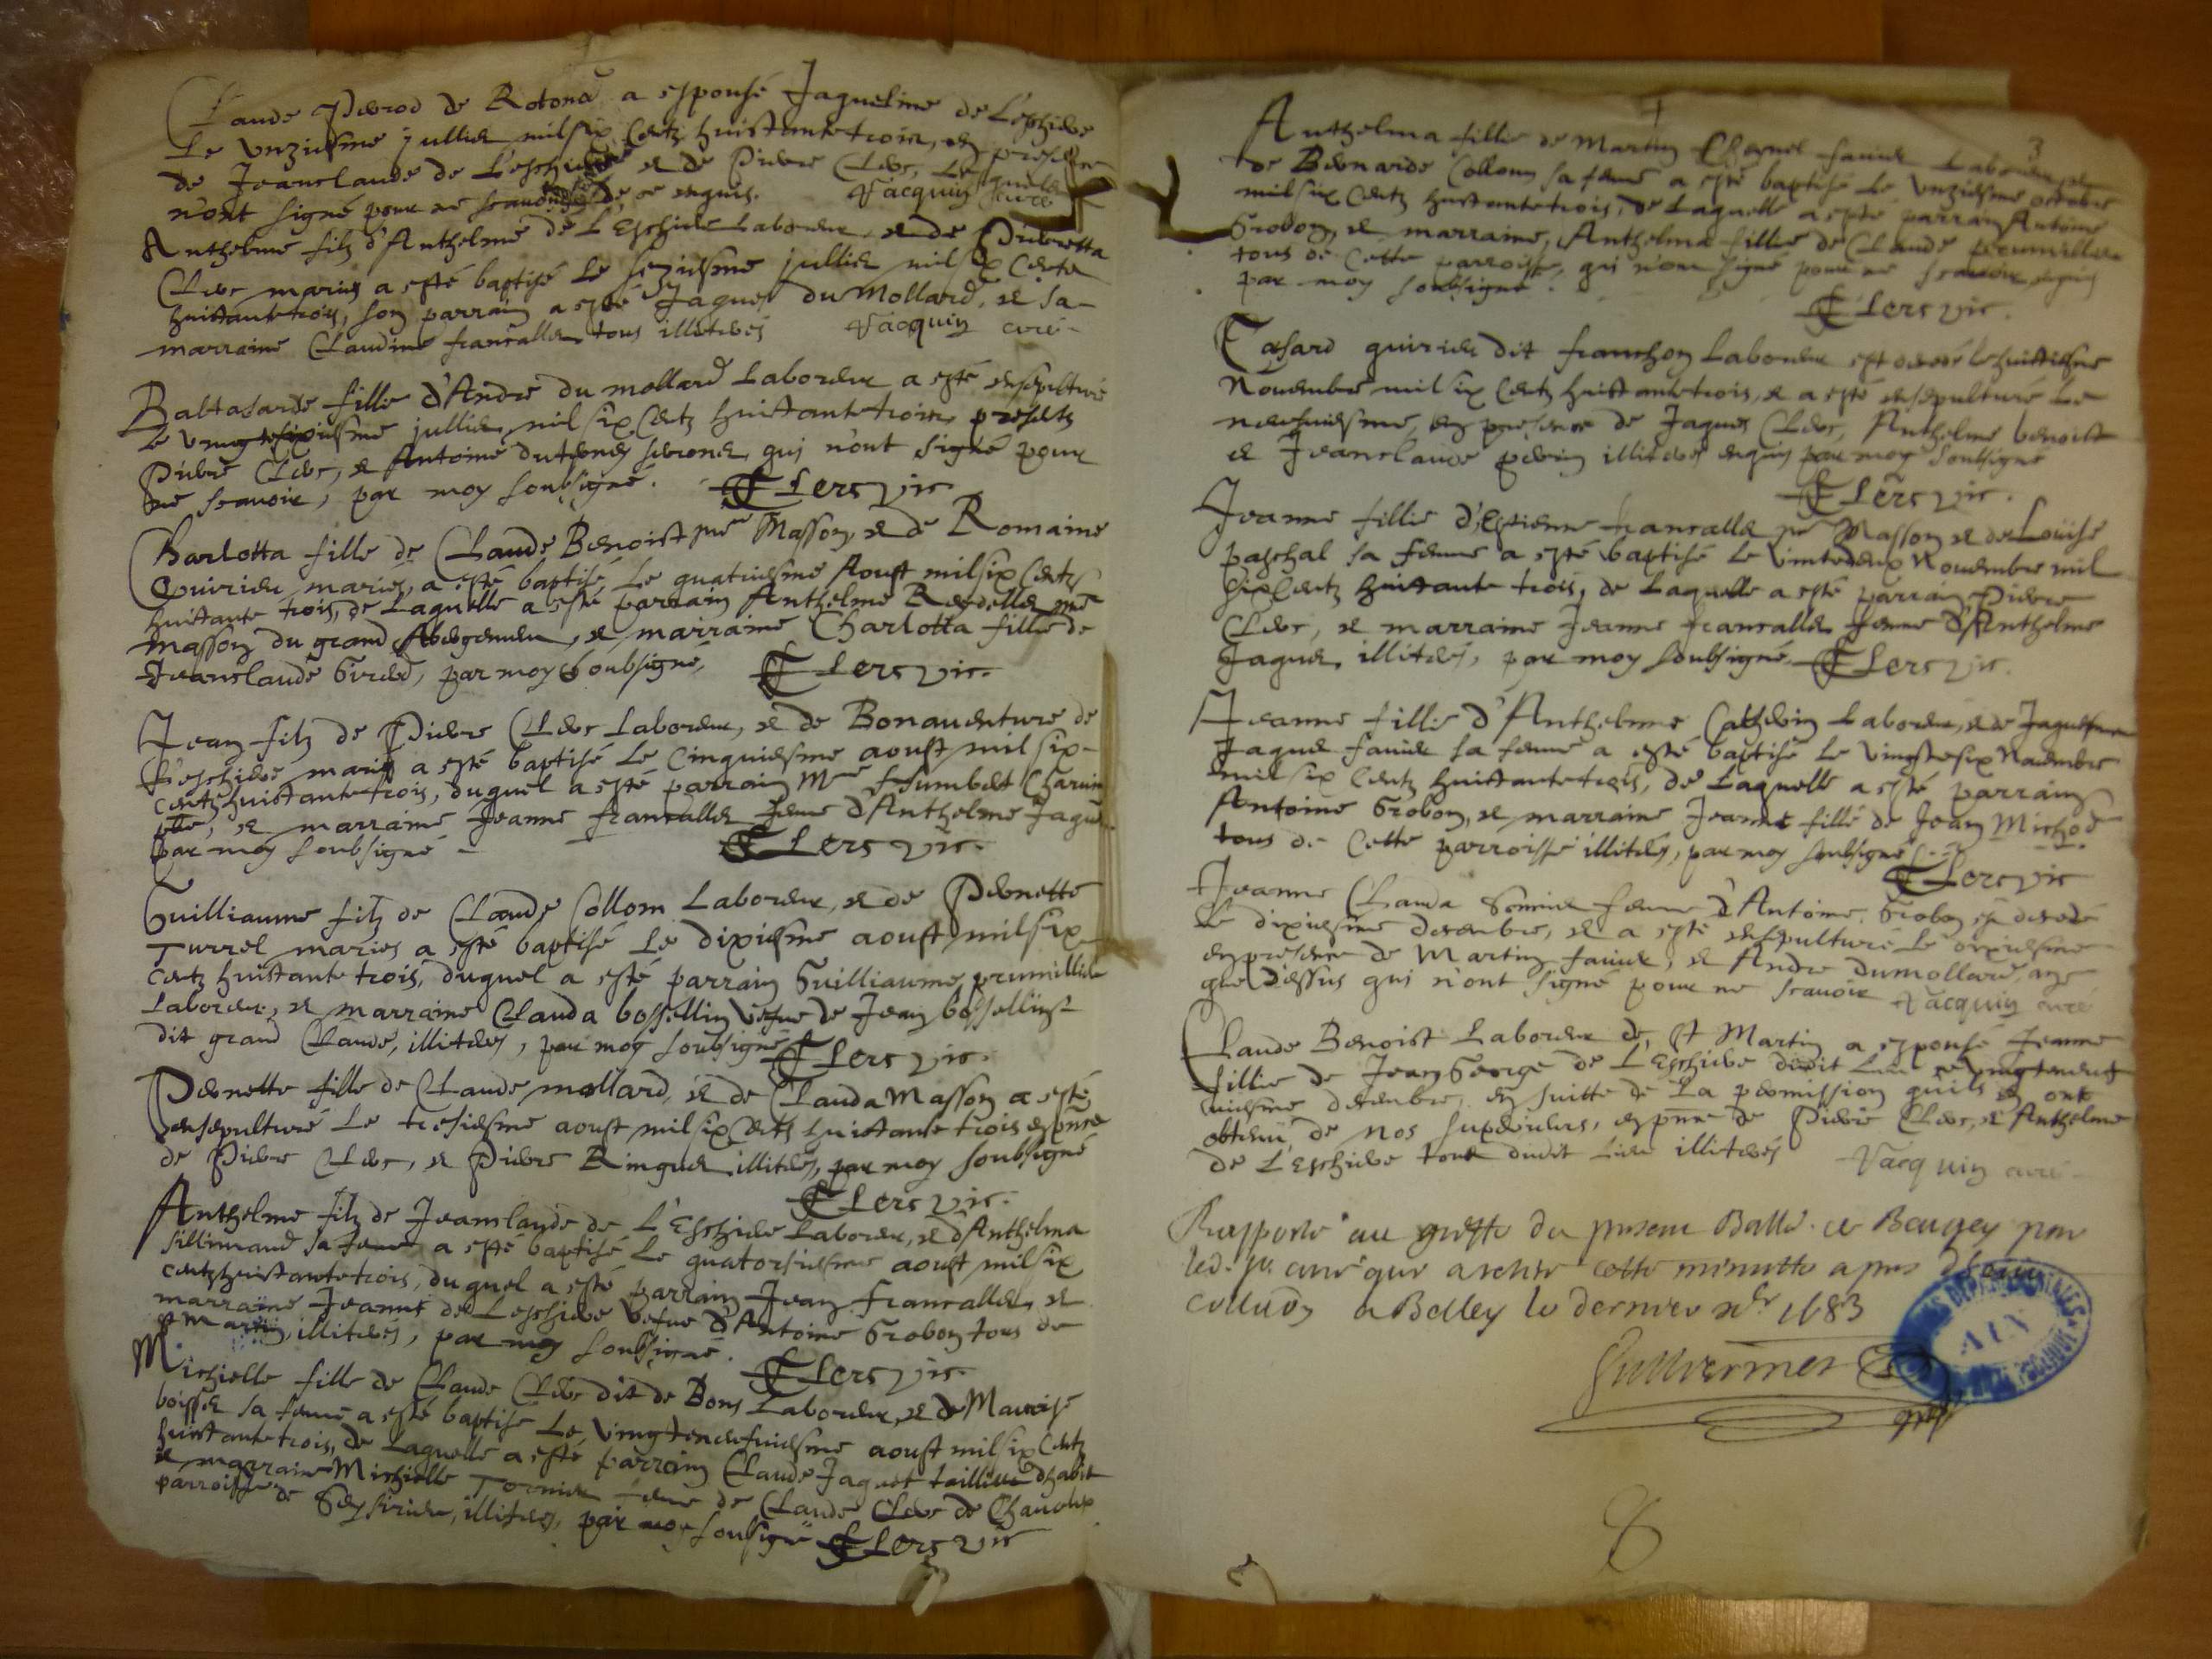 Claude Perrod de Rotond a espousé Jaqueline de L'eschiere
Le unziesme jullier mil six Centz huictante trois, en presence
de Jeanclaude de L'eschiere et de Pierre Clerc, Lesquels
n'ont signé pour ne scavoir de ce enquis. Vacquin curé
Anthelme filz d'Anthelme de L'Eschiere Laboreur, et de Pierretta
Clerc mariés a esté baptisé Le seziesme jullier mil six Centz
huictante trois, son parrain a esté Jaques du Mollard, et sa-
marraine Claudine francallet tous illiterés Vacquin curé-
Baltasarde fillie d'André du mollard Laboreur a esté ensepulturé
le jullier mil six Centz huictante trois, presents
Pierre Clerc, et Antoine qui n'ont signé pour
ne scavoir, par moy soubsigné. Clerc vic.
Charlotta fille de Claude Benoist me Masson, et de Romaine
Quirier mariés, a esté baptisé Le quatriesme Aoust mil six Centz
huictante trois, de Laquelle a esté parrain Anthelme me
masson du grand Abergement, et marraine Charlotta fillie de
Jeanclaude Girerd, par moy soubsigné, Clerc vic.
Jean filz de Pierre Clerc Laboreur, et de Bonaventure de
L'eschiere mariés a esté baptisé Le Cinquiesme aoust mil six-
Centz huictante trois, duquel a esté parrain Mre Humbert Charvin
et marraine Jeanne francallet feme d'Anthelme Jaquet
par moy soubsigné - Clerc vic.
Guilliaume filz de Claude Collom Laboreur, et de Pernette
Turrel mariés a esté baptisé Le dixiesme aoust mil six
Centz huictante trois, duquel a esté parrain Guilliaume prumillieu
Laboreur, et marraine Clauda bossellin vefve de Jean bossellin
dit grand Claude, illiterés, par moy soubsigné Clerc vic.
Pernette fille de Claude mollard, et de Clauda Masson a esté
ensepulturé Le tresiesme aoust mil six Centz huictante trois en pnce
de Pierre Clerc, et Pierre Ringuet illiterés, par moy soubsigné
Clerc vic.
Anthelme filz de Jeanclaude de L'Eschiere Laboreur, et d'Anthelma
Sillimand sa feme a esté baptisé Le quatorsiesme aoust mil six
Centz huictante trois, duquel a esté parrain Jean francallet, et
marraine Jeanne de L'eschiere vefve d'Antoine Grobon tous de
St Martin, illiterés, par moy soubsigné. Clerc vic.
Michielle fille de Claude Clerc dit de Bons Laboreur, et de Maurise
boisset sa feme a esté baptisé Le vingteneufviesme aoust mil six Centz
huictante trois, de Laquelle a esté parrain Claude Jaquet taillieur dhabit
et marraine Michielle Tornier feme de Claude Clerc de
parroisse de illiterés, par moy soubsigné Clerc vic
3
Anthelma fillie de Martin favier Laboreur, et
de Bernarde Collom sa feme a esté baptisé Le unziesme octobre
mil six Centz huictante trois, de Laquelle a esté parrain Antoine
Grobon, et marraine, Anthelma fillie de Claude prumillieu
tous de Cette parroisse, qui n'ont signé pour ne scavoir enquis
par moy soubsigné. Clerc vic.
Cesard quirier dit franchon Laboreur est decedé le huictiesme
Novembre mil six Centz huictante trois, et a esté ensepulturé Le
neufviesme, en presence de Jaques Clerc, Anthelme benoist
et Jeanclaude perrin illiterés enquis par moy soubsigné
Clerc vic.
Jeanne fillie d'Estienne francallet me Masson et de Louise
paschal sa feme a esté baptisé Le vintedeux Novembre mil
six Centz huictante trois, de Laquelle a esté parrain Pierre
Clerc, et marraine Jeanne francallet feme d'Anthelme
Jaquet, illiterés, par moy soubsigné. Clerc vic.
Jeanne fillie d'Anthelme Cathelin Laboreur, et de
Jaquet favier sa feme a esté baptisé Le vingtesix Novembre
mil six Centz huictante trois, de Laquelle a esté parrain
Antoine Grobon, et marraine Jeanne fille de Jean Michod
tous de Cette parroisse illiterés, par moy soubsigné
Clerc vic
Jeanne Clauda feme d'Antoine Grobon est decedé
Le dixiesme decembre, et a esté ensepulturé Le onziesme
en presence de Martin favier, et André dumollard,
que dessus qui n'ont signé pour ne scavoir Vacquin curé
Claude Benoist Laboreur de St Martin a espousé Jeanne
fillie de Jean George de L'Eschiere dudit Lieu
decembre, en suitte de La permission quils en ont
obtenu de nos superieurs, en pnce de Pierre Clerc, et Anthelme
de L'Eschiere tous dudit Lieu illiterés Vacquin curé-
Rapporté au greffe du present Balle. de Beugey par
led. sr curé que a retiré cette minutte apres
collaon a Belley le dernier xbr 1683